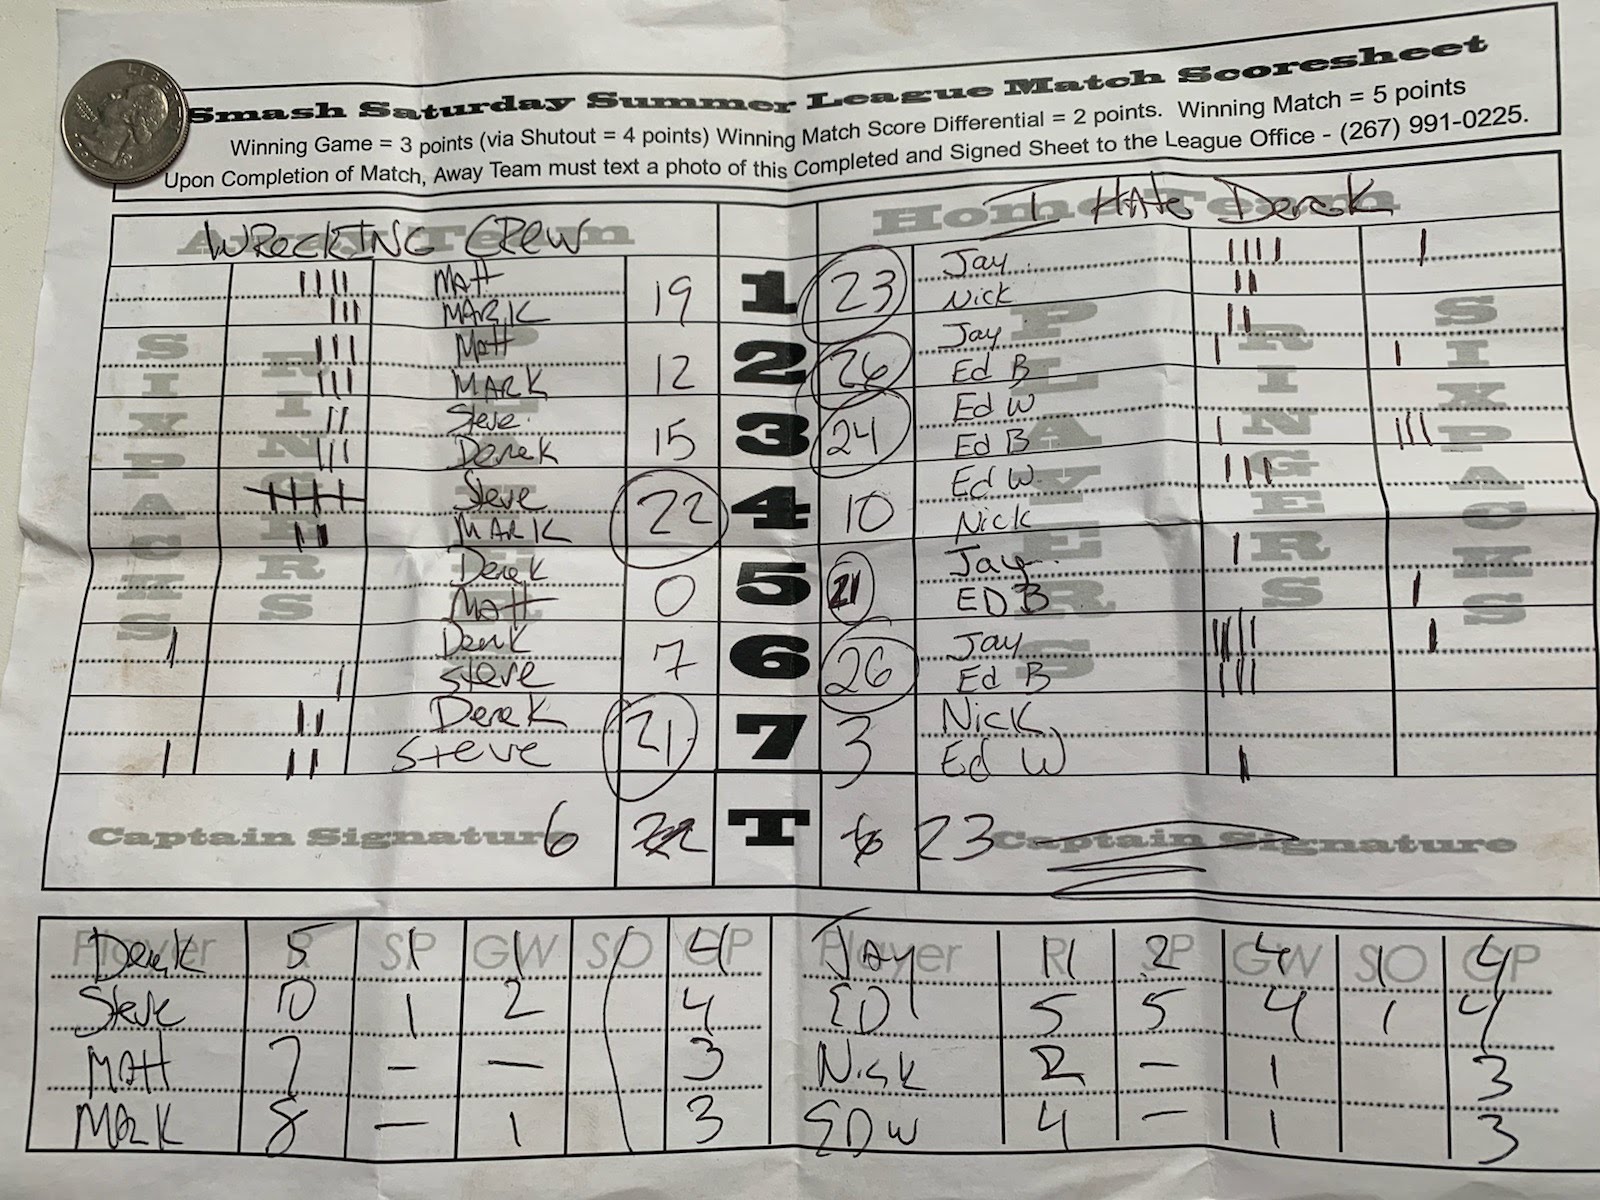 Smash Saturday Summer League Match Scoresheet
Winning Game = 3 points (via Shutout = 4 points) Winning Match Score Differential = 2 points. Winning Match = 5 points
Upon Completion of Match, Away Team must text a photo of this Completed and Signed Sheet to the League Office - (267) 991-0225.
Away Team Home Team
WRECKING CREW I HATE Derek
SIXPACKS RINGERS PLAYERS PLAYERS RINGERS SIXPACKS
Matt 19 1 23 Jay
MARK Nick
Matt 12 2 26 Jay
MARK Ed B
Steve 15 3 24 Ed W
Derek Ed B
Steve 22 4 10 Ed W
MARK Nick
Derek 0 5 21 Jay
Matt ED B
Derek 7 6 26 Jay
Steve Ed B
Derek 21 7 3 Nick
Steve Ed W
Captain Signature 6 T 23 Captain Signature
Player R SP GW SO GP Player R SP GW SO GP
Derek 5 1 1 4 Jay 11 2 4 1 4
Steve 10 1 2 4 ED 5 5 4 1 4
Matt 7 – – 3 Nick 2 – 1 3
Mark 8 – 1 3 ED W 4 – 1 3